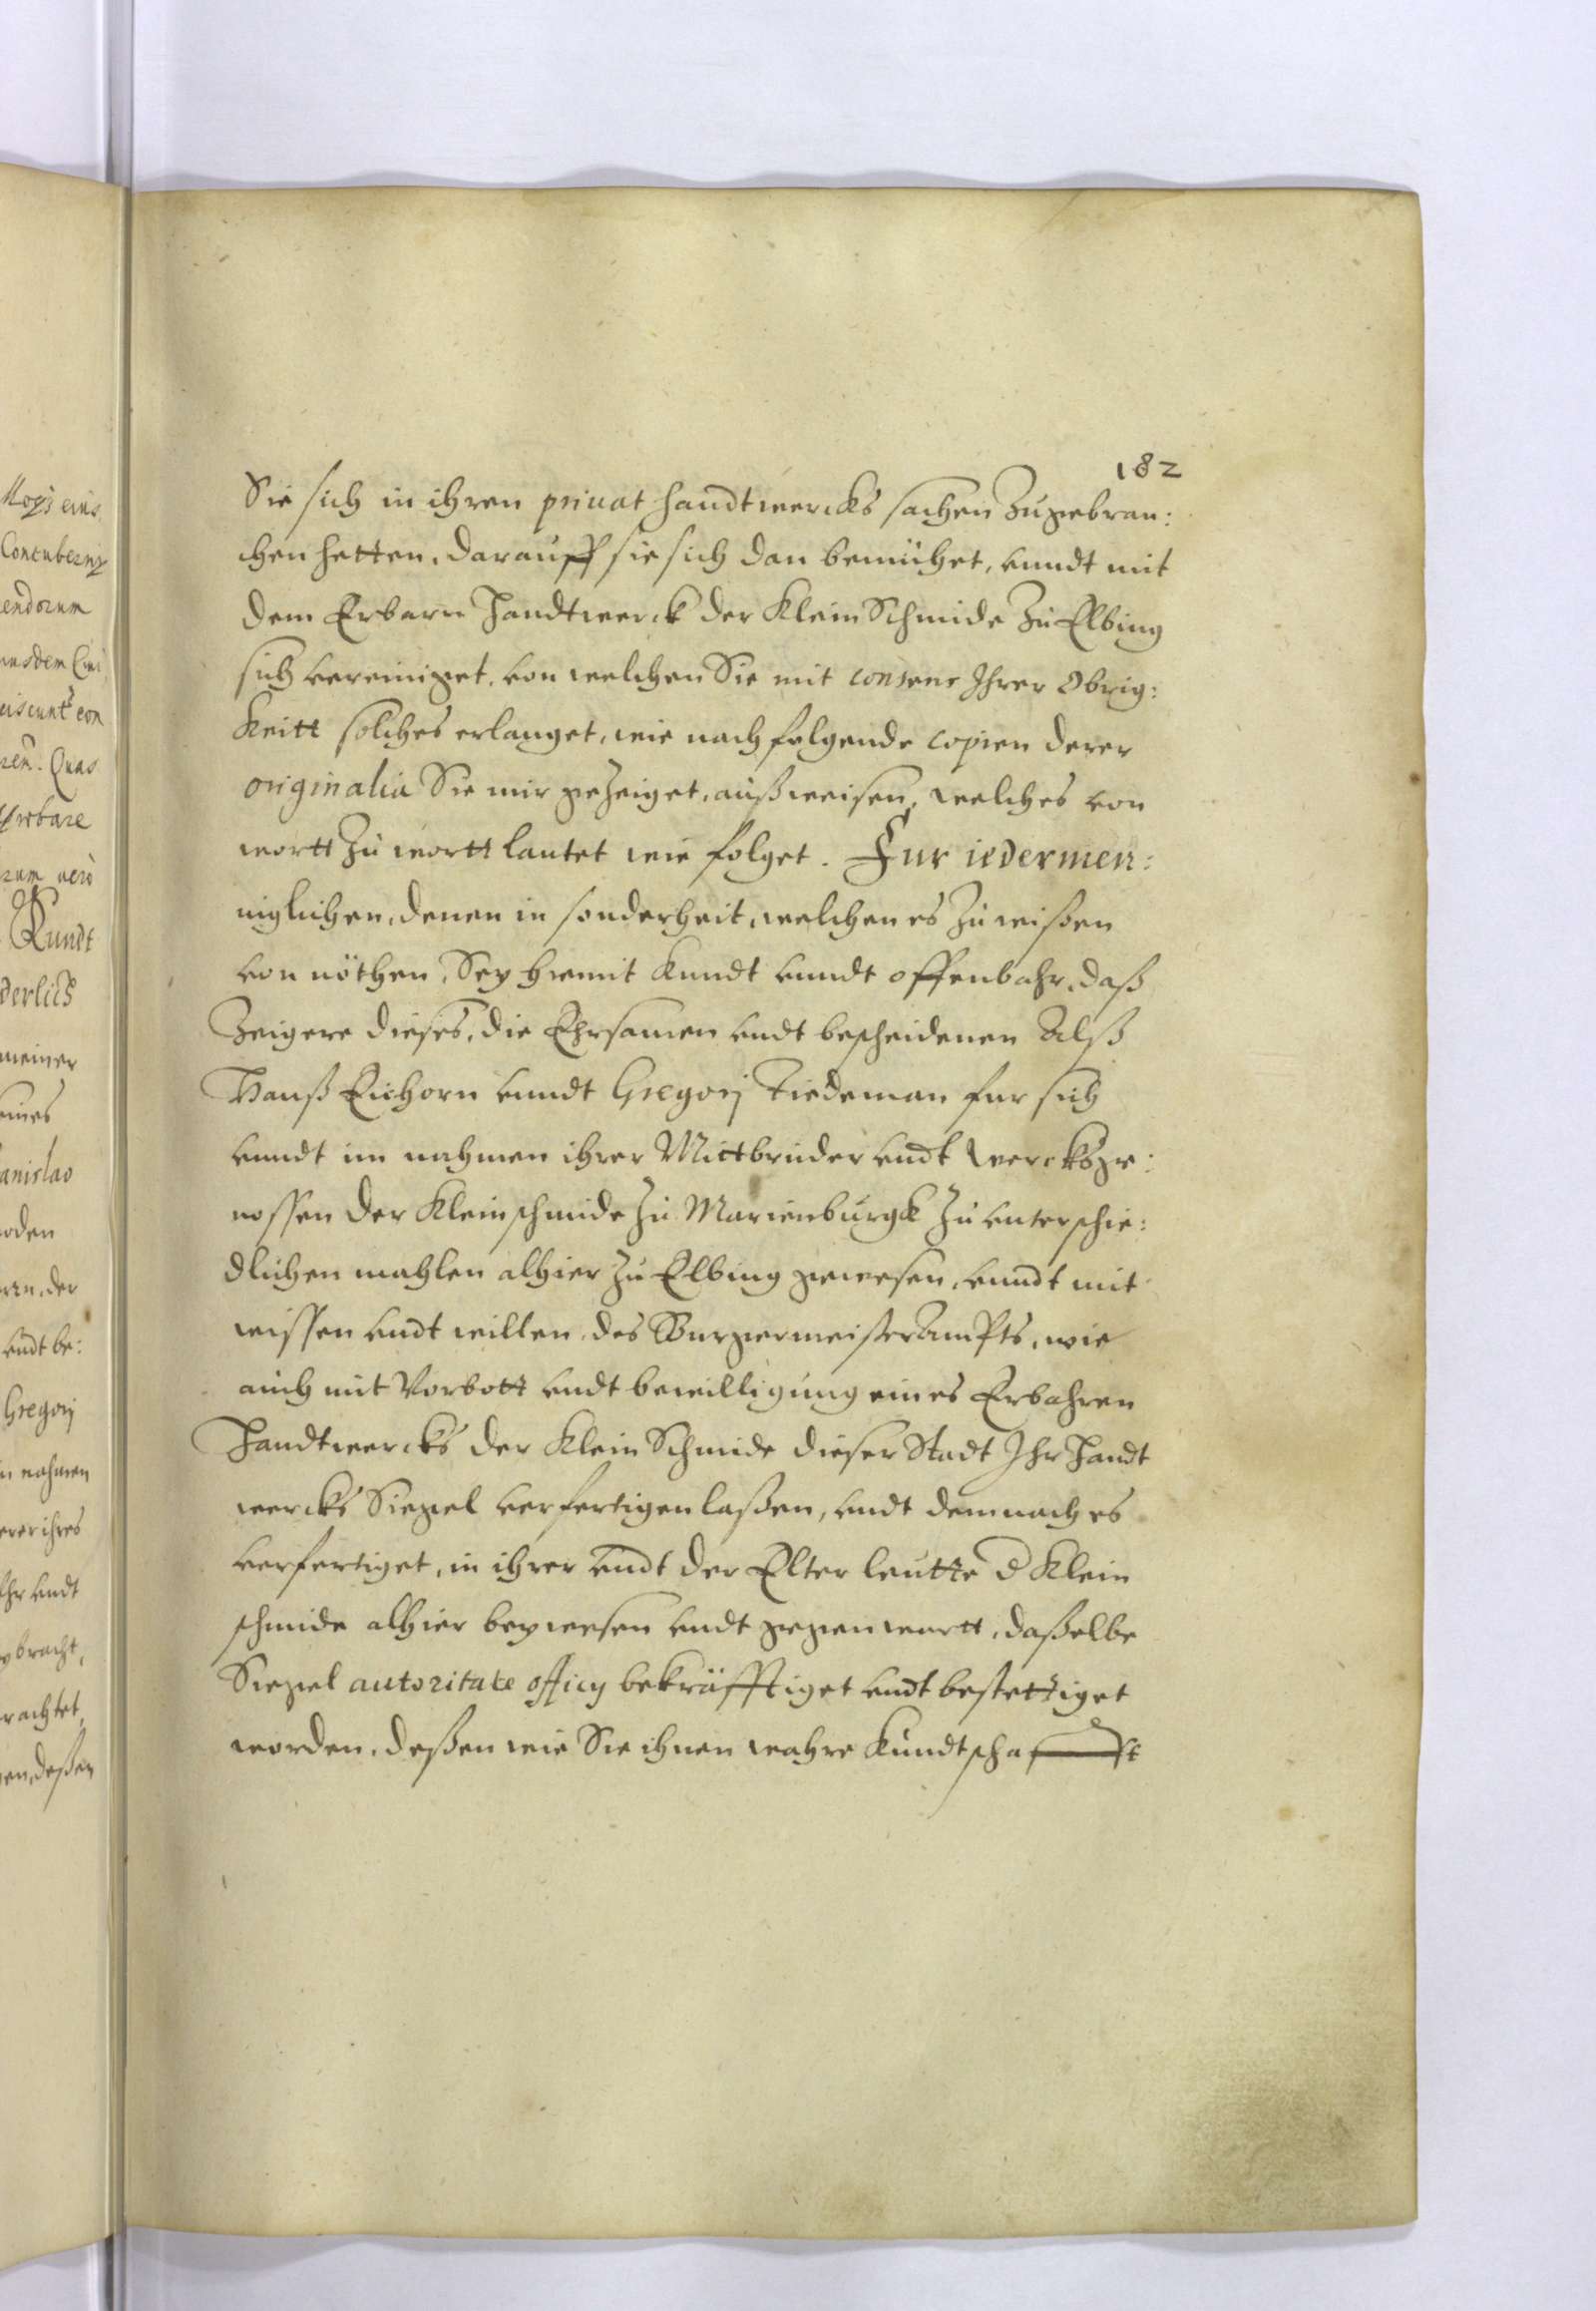 182
Sie sich in ihren priuat handtwercks sachen Zugebrau:
chen hetten, darauff sie sich dan bemühet, vnndt mit
dem Erbarn Handtwerck der Klein Schmide Zu Elbing
sich vereiniget, von welchen Sie mit consens Ihrer Obrig:
Keitt solches erlanget, wie nachfolgende copien derer
originalia Sie mir gezeiget, außweisen, welches von
wortt Zu wortt lautet wie folget. Fur iedermen:
niglichen, denen in sonderheit, welchen es Zu wißen
von nöthen, Sey hiemit Kundt vnndt offenbahr, daß
Zeigere dieses, die Ehrsamen vndt bescheidenen Alß
Hanß Eichorn vnndt Gregorj Tiedeman fur sich
vnndt im nahmen ihrer Mittbruder vndt Wercksge:
nossen der Kleinschmide Zu Marienburgk Zu vnterschie:
dlichen mahlen alhier Zu Elbing gewesen, vnndt mit
wissen vndt willen des Burgermeister Ampts, wie
auch mit Vorbott vndt bewilligung eines Erbahren
Handtwercks der Klein Schmide dieser Stadt Ihr Handt
wercks Siegel verfertigen laßen, vndt demnach es
verfertiget, in ihrer vndt der Elter leutte d Klein
schmide alhier beywesen vndt gegenwartt, daßelbe
Siegel autoritate officij bekräfftiget vndt bestettiget
worden, deßen wie Sie ihnen wahre Kundtschafft
Contuberny
endorum
Quas
Erbare
Kundt
derlich
meiner
eines
anislao
oden
der
vndt be:
Gregorj
nahmen
ihres
vndt
bracht,
rachtet,
deßen